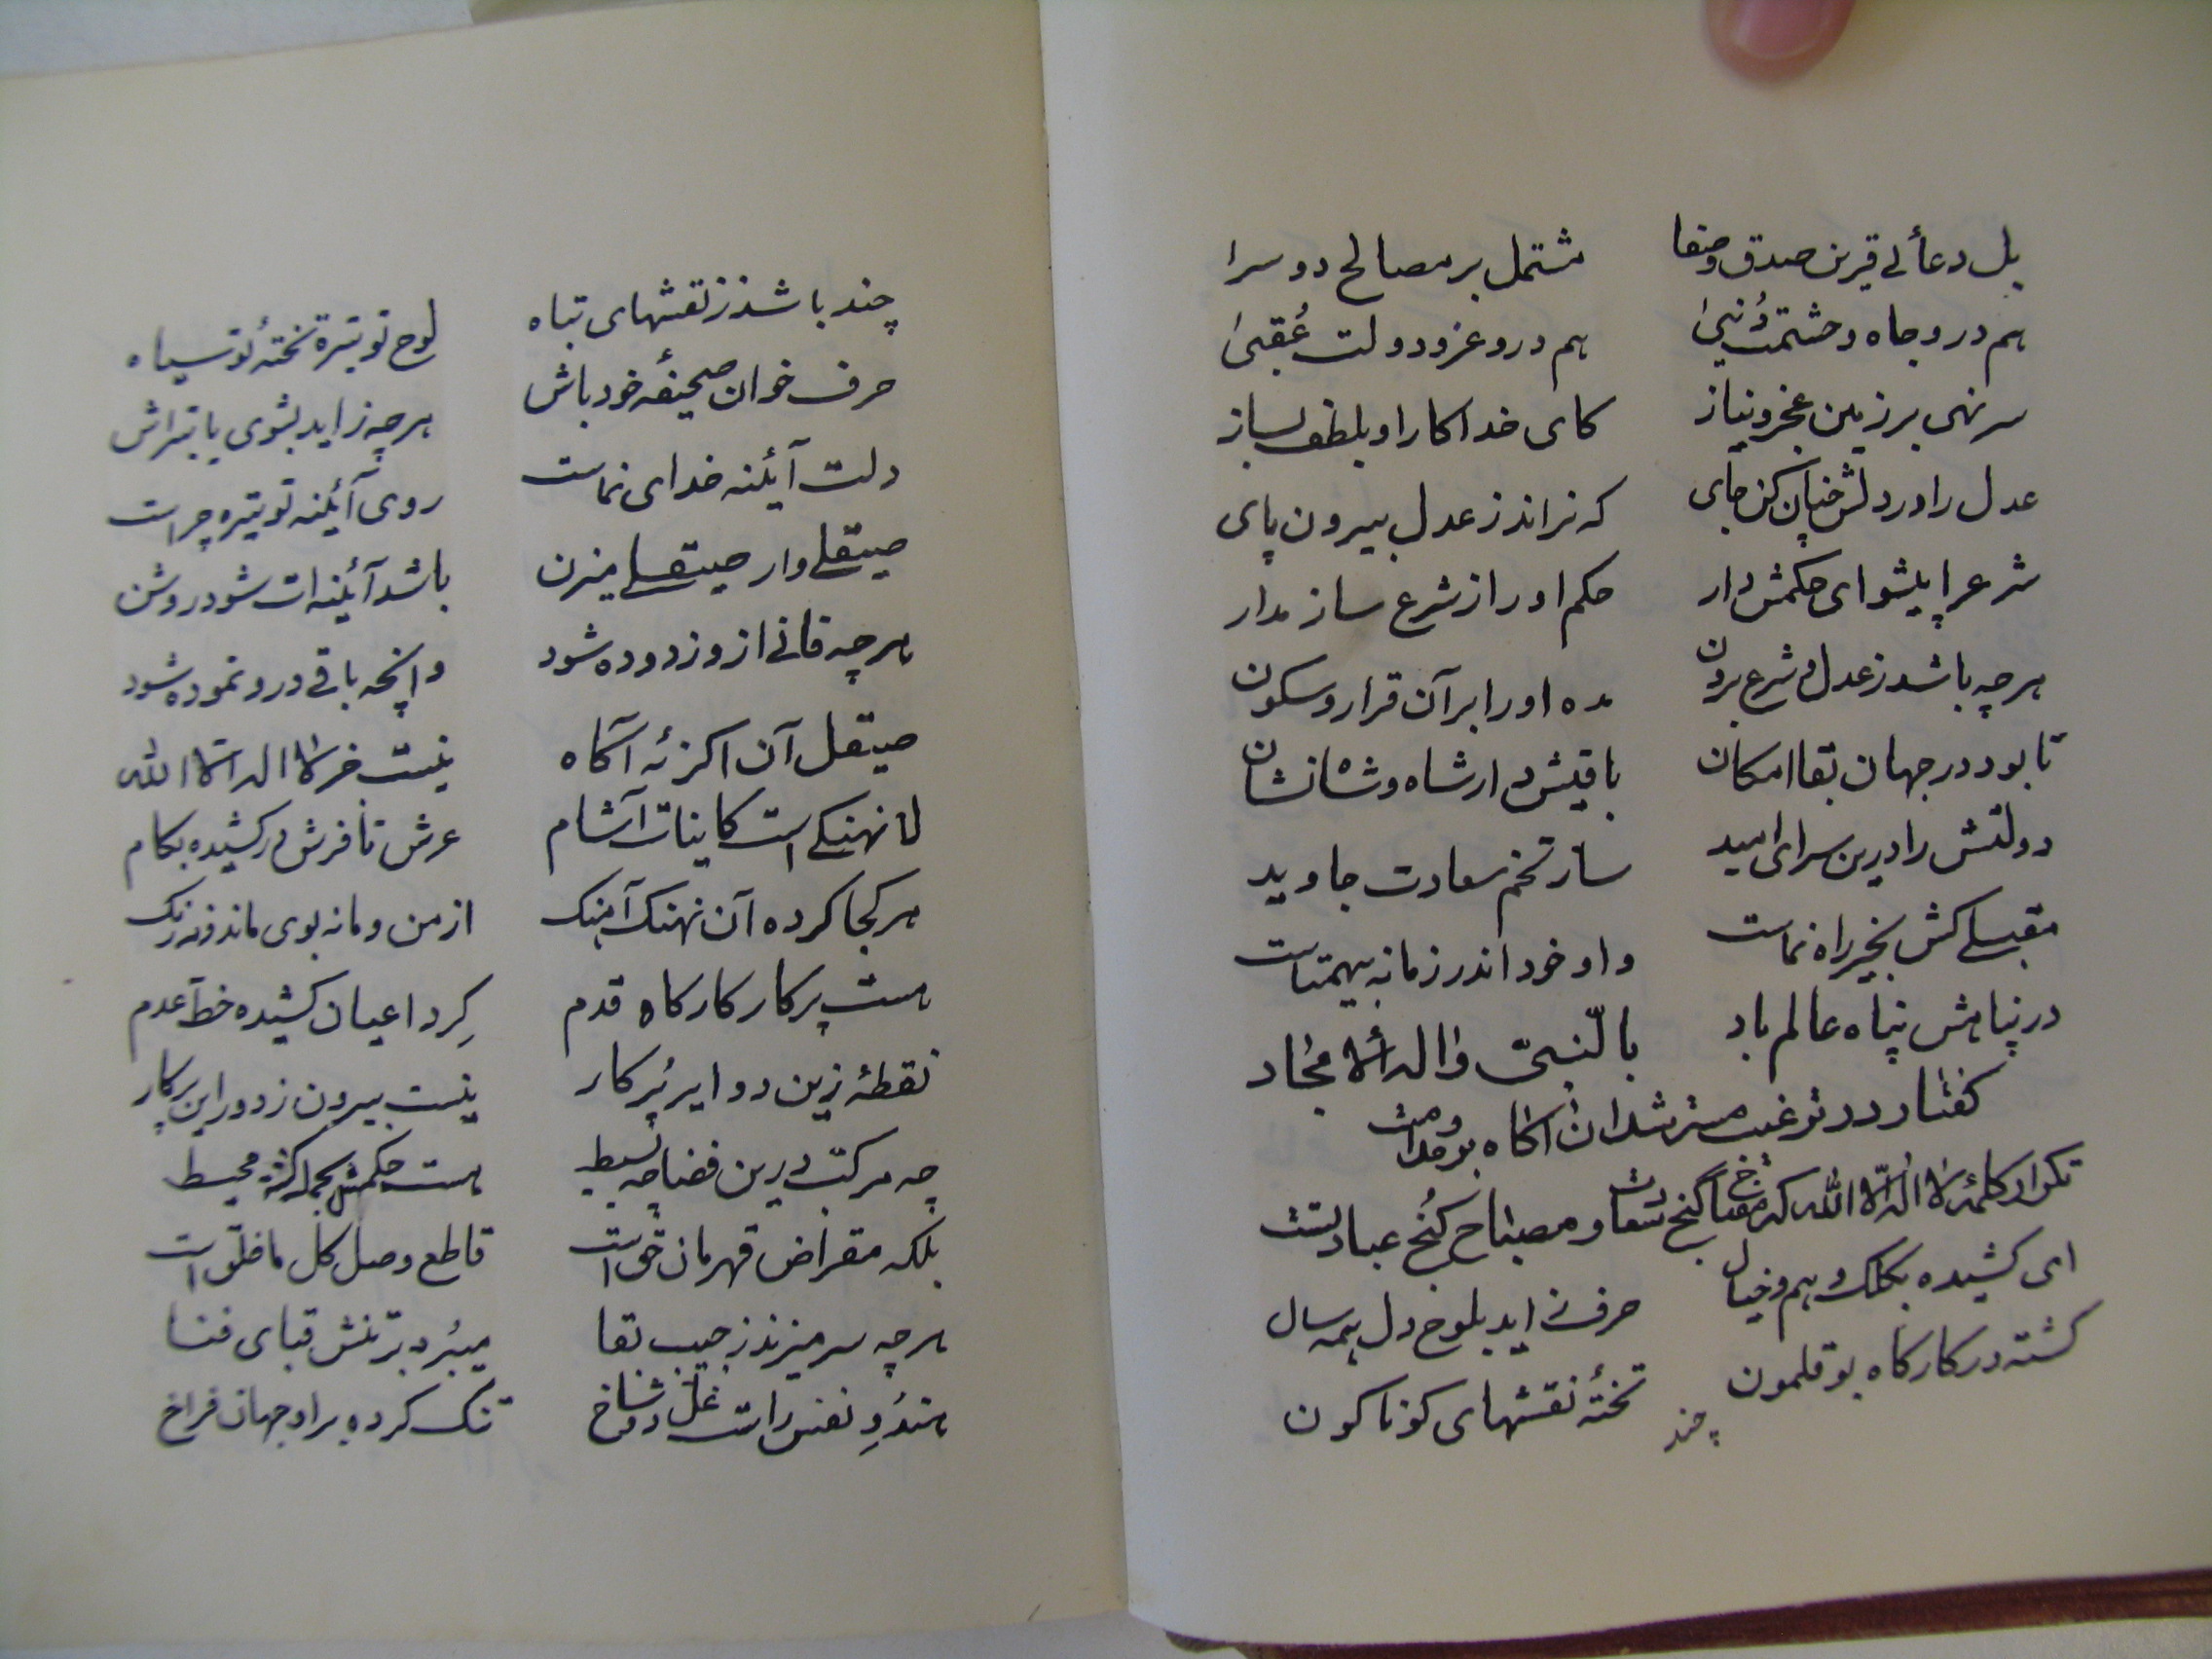 بل دعائے قرین صدق و صفا مشتمل بر مصالح دو سرا
هم درو جاه و حشمت دُنییٰ هم درو عز و دولت عُقبیٰ
سر نهی بر زمین عجز و نیاز کای خدا کار او بلطف بساز
عدل را در دلش چنان کن جای که نراند ز عدل بیرون پای
شرع را پیشوای حکمش دار حکم او را ز شرع ساز مدار
هرچه باشد ز عدل و شرع برون مده او را بر آن قرار و سکون
تا بود در جهان بقا امکان باقیش دار شاه و شاه نشان
دولتش را درین سرای امید ساز تخم سعادت جاوید
مقبلے کش بخیر راه نماست واو خود اندر زمانه بیهمتاست
در پناهش پناه عالم باد بالنّبیّ و اله الامجاد
کفتار در ترغیب مسترشدان اکاه بر مداومت
تکرار کلمهٔ لا اله الّا الله که مفتاح گنج سعادت و مصباح کُنج عبادتست
ای کشیده بکلک وهم و خیال حرف زاید بلوح دل همه سال
کشته در کارکاه بوقلمون تختهٔ نقشهای کوناکون
چند
چند باشد ز نقشهای تباه لوح تو تیرة تختهٔ تو سیاه
حرف خوان صحیفهٔ خود باش هرچه زاید بشوی یا بتراش
دلت آئینه خدای نماست روی آئینه تو تیره چراست
صیقلے وار صیقلے میزن باشد آئینه ات شود روشن
هرچه فانے از و زدوده شود وانچه باقے درو نموده شود
صیقل آن اکر نهٔ آکاه نیست خر لا اله الا الله
لا نهنکے است کاینات آشام عرش تا فرش در کشیده بکام
هر کجا کرده آن نهنک آهنک از من و ما نه بوی ماند و نه رنک
هست پرکار کارکاه قدم کِرد اعیان کشیده خط عدم
نقطهٔ زین دوایر پُرکار نیست بیرون ز دور این پرکار
چه مرکب درین فضا چه بسیط هست حکمش بجمله کشته محیط
بلکه مقراض قهرمان حق است قاطع وصل کل ما خلق است
هرچه سر میزند ز جیب بقا میبُرد بر تنش قبای فنا
هندُوِ نفس راست غل دو شاخ تنک کرده برو جهان فراخ